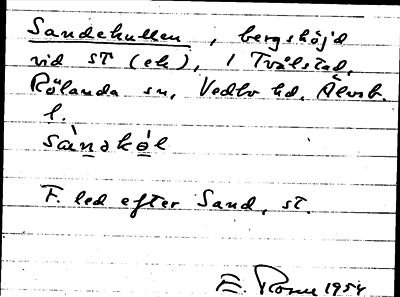 Sandekullen, bergshöjd
vid ST (ek), i Tvålstad,
Rölanda sn, Vedbo hd, Älvsb.
l.
sàndəkə́l
F. led efter Sand, st.
E. 1954